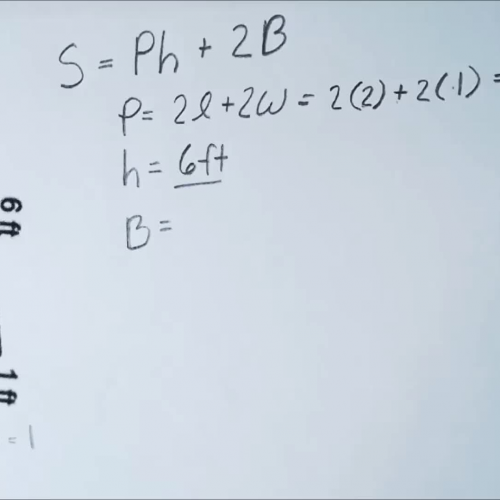 S = Ph + 2B
P = 2l + 2w = 2(2) + 2(1) =
h = 6ft
B =
6 ft
1 ft
= 1